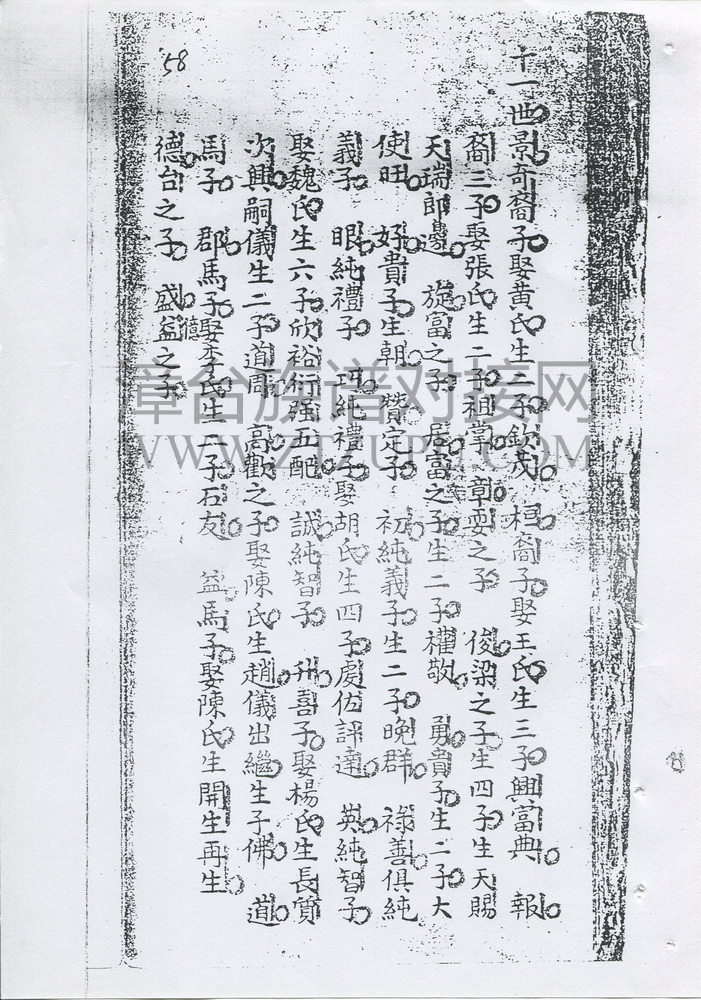 十一世景奇裔子娶黄氏生二子欽茂 桓裔子娶王氏生三子興富典 報
裔三子娶張氏生二子祖掌 彰耍之子 俊梁之子生四子生天賜
天瑞郎邊 旋富之子 居富之子生二子權敬 勇貴子生二子大
使旺 好貴子生朝 贊定子 初純義子生二子晚群 祿善俱純
義子 眼純禮子 純禮子娶胡氏生四子處伍評達 英純智子
娶魏氏生六子欣裕衍强五配 誠純智子 升喜子娶楊氏生長質
次興嗣儀生二子道周 高歡之子娶陳氏生趙儀出繼生子佛 道
馬子 郡馬子娶李氏生二子石友 益馬子娶陳氏生開生再生
德台之子 盛益之子
德
58
漳台族谱对接网
WWW.ZTZUPU.COM